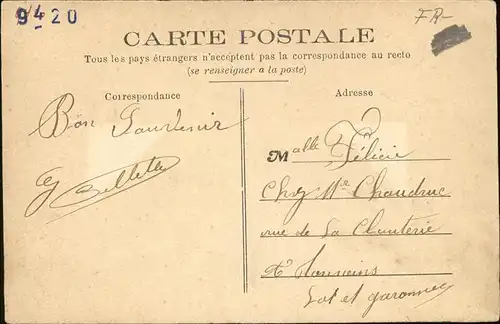 9420
FR-
CARTE POSTALE
Tous les pays étrangers n'acceptent pas la correspondance au recto
(se renseigner a la poste)
Correspondance
Adresse
Bon Souvenir
Malle Félicie
Chez Mr Chaudruc
rue de La
à Tonneins
Lot et garonne